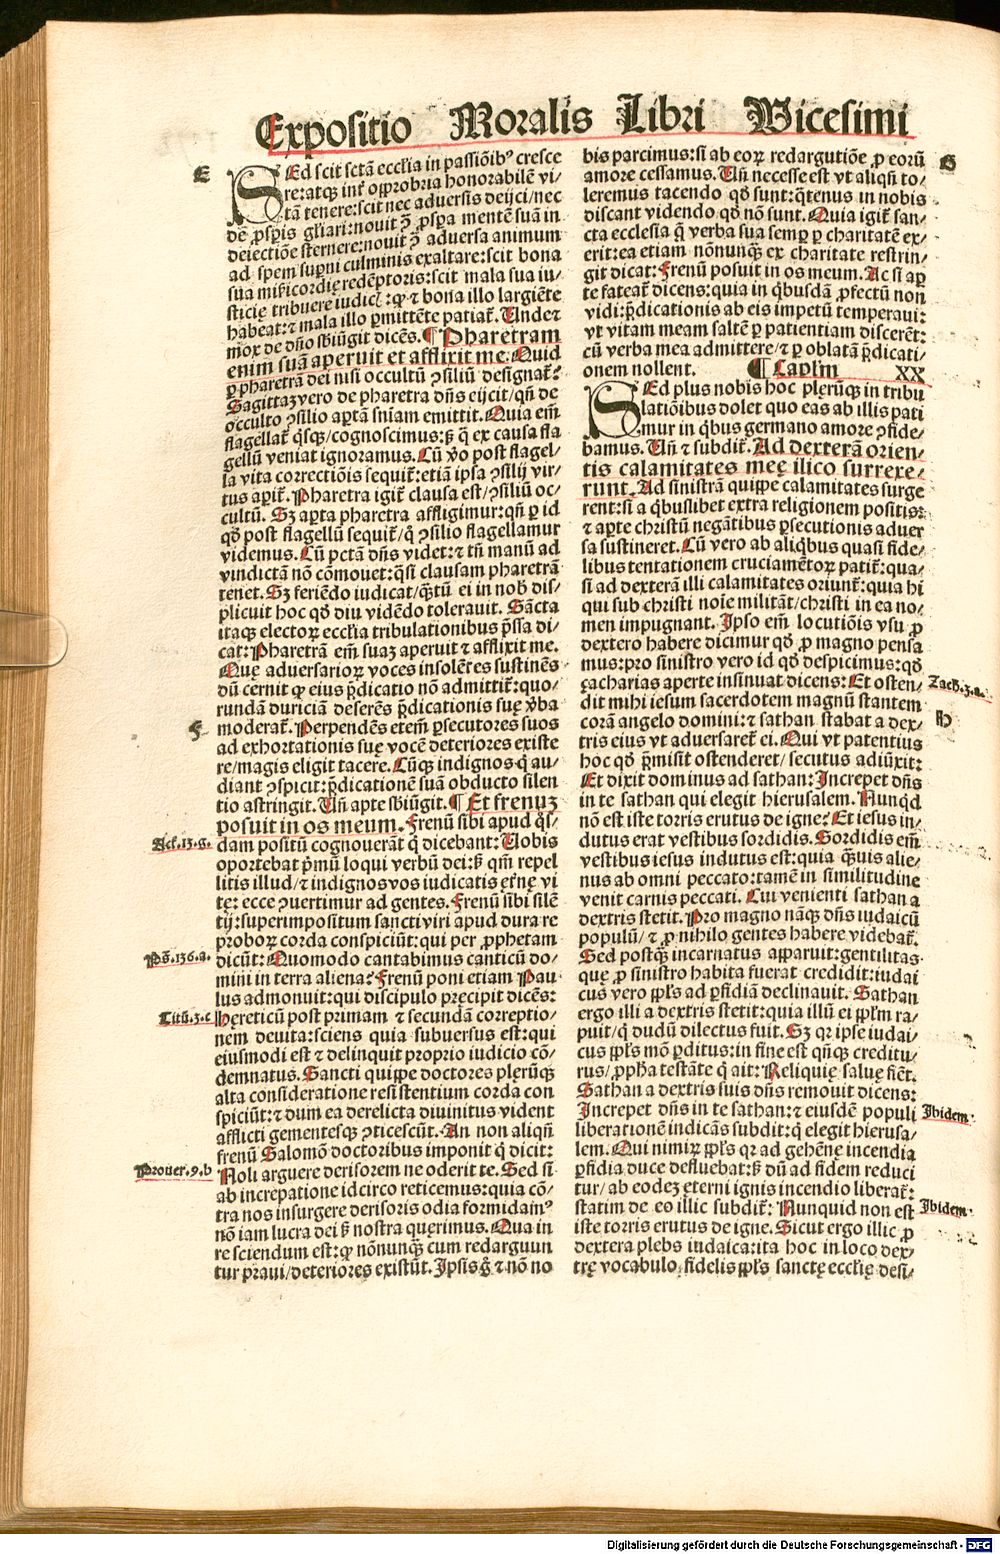 Expositio Moralis Libri Vicesimi
E
SEd scit sctã eccľia in passiõibꝰ cresce
re:atqꝫ int̃ opprobria honorabilẽ vi⸗
tã tenere:scit nec aduersis deijci/nec
de ꝓsp̃is gľiari:nouit ꝯ̃ ꝓsp̃a mentẽ suã in
deiectiõe sternere:nouit ꝯ̃ aduersa animum
ad spem sup̃ni culminis exaltare:scit bona
sua mis̃icordię redẽptoris:scit mala sua iu⸗
sticię tribuere iudicꝭ:ꝙ ⁊ bona illo largiẽte
habeat:⁊ mala illo ꝑmittẽte patiat᷑. Under
mox de dño sb̃iũgit dicẽs.¶Pharetram
enim suã aperuit et afflixit me. Quid
ꝑ pharetrã dei nisi occultũ ꝯsiliũ designat᷑?
Sagittaꝫ vero de pharetra dñs eijcit/qñ de
occulto ꝯsilio aꝑtã sñiam emittit. Quia em̃
flagellat᷑ q̃sqꝫ/cognoscimus:sꝫ q̃ ex causa fla
gellũ veniat ignoramus. Cũ ṽo post flagel⸗
la vita correctiõis sequit᷑:etiã ipsa ꝯsilij vir⸗
tus aꝑit᷑. Pharetra igit᷑ clausa est/ꝯsiliũ oc⸗
cultũ. Sꝫ aꝑta pharetra affligimur:qñ ꝑ id
qď post flagellũ sequit᷑/q̃ ꝯsilio flagellamur
videmus. Cũ pctã dñs videt:⁊ tñ manũ ad
vindictã nõ cõmouet:q̃si clausam pharetrã
tenet. Sꝫ feriẽdo iudicat/q̃tũ ei in nob̃ dis⸗
plicuit hoc qď diu vidẽdo tolerauit. Sãcta
itaqꝫ electoꝝ eccľia tribulationibus p̃ssa di⸗
cat:Pharetrã em̃ suaꝫ aperuit ⁊ afflixit me.
Quę aduersarioꝝ voces insolẽtes sustinẽs
dũ cernit ꝙ eius p̃dicatio nõ admittit᷑:quo⸗
rundã duriciã deserẽs p̃dicationis suę ṽba
F
moderat᷑. Perpendẽs etem̃ ꝑsecutores suos
ad exhortationis suę vocẽ deteriores existe
re/magis eligit tacere. Cũqꝫ indignos q̃ au⸗
diant ꝯspicit:p̃dicationẽ suã obducto silen
tio astringit. Uñ apte sb̃iũgit.¶Et frenuꝫ
posuit in os meum. Frenũ sibi apud q̃s⸗
Act.13.g.
dam positũ cognouerãt q̃ dicebant:Uobis
oportebat p̃mũ loqui verbũ dei:sꝫ qm̃ repel
litis illud/⁊ indignos vos iudicatis et̃nę vi
tę:ecce ꝯuertimur ad gentes. Frenũ sibi silẽ
tij:superimpositum sancti viri apud dura re
proboꝝ corda conspiciũt:qui per ꝓphetam
Ps̃.136.a.
dicũt:Quomodo cantabimus canticũ do⸗
mini in terra aliena? Frenũ poni etiam Pau
lus admonuit:qui discipulo pręcipit dicẽs:
Titũ.3.c
Hęreticũ post primam ⁊ secundã correptio⸗
nem deuita:sciens quia subuersus est:qui
eiusmodi est ⁊ delinquit proprio iudicio cõ⸗
demnatus. Sancti quippe doctores plerũqꝫ
alta consideratione resistentium corda con
spiciũt:⁊ dum ea derelicta diuinitus vident
afflicti gementesqꝫ ꝯticescũt. An non aliqñ
frenũ Salomõ doctoribus imponit q̃ dicit:
Prouer.9.b
Noli arguere derisorem ne oderit te. Sed si
ab increpatione idcirco reticemus:quia cõ⸗
tra nos insurgere derisoris odia formidamꝰ
nõ iam lucra dei sꝫ nostra quęrimus. Qua in
re sciendum est:ꝙ nõnunqꝫ̃ cum redarguun
tur praui/deteriores existũt. Ipsis g̃ ⁊ nõ no
bis parcimus:si ab eoꝝ redargutiõe ꝓ eorũ
G
amore cessamus. Uñ necesse est vt aliqñ to⸗
leremus tacendo qď sunt:q̃tenus in nobis
discant videndo qď nõ sunt. Quia igit᷑ san⸗
cta ecclesia q̃ verba sua semꝑ ꝑ charitatẽ ex⸗
erit:ea etiam nõnunqꝫ̃ ex charitate restrin⸗
git dicat:Frenũ posuit in os meum. Ac si aꝑ
te fateat᷑ dicens:quia in q̃busdã ꝓfectũ non
vidi:p̃dicationis ab eis impetũ temperaui:
vt vitam meam saltẽ ꝑ patientiam discerẽt:
cũ verba mea admittere/⁊ ꝑ oblatã p̃dicati⸗
onem nollent. ¶Capľm XX
SEd plus nobis hoc plerũqꝫ in tribu
latiõibus dolet quo eas ab illis pati
mur in q̃bus germano amore ꝯfide⸗
bamus. Uñ ⁊ subdit᷑. Ad dexterã orien⸗
tis calamitates meę ilico surrexe⸗
runt. Ad sinistrã quippe calamitates surge
rent:si a q̃buslibet extra religionem positis:
⁊ aꝑte christũ negãtibus ꝑsecutionis aduer
sa sustineret. Cũ vero ab aliq̃bus quasi fide⸗
libus tentationem cruciamẽtoꝝ patit᷑:qua⸗
si ad dexterã illi calamitates oriunt᷑:quia hi
qui sub christi noĩe militãt/christi in ea no⸗
men impugnant. Ipso em̃ locutiõis vsu ꝓ
dextero habere dicimur qď ꝓ magno pensa
mus:pro sinistro vero id qď despicimus:qď
Zach.3.a.
zacharias aperte insinuat dicens:Et osten⸗
dit mihi iesum sacerdotem magnũ stantem
H
corã angelo domini:⁊ sathan stabat a dex⸗
tris eius vt aduersaret᷑ ei. Qui vt patentius
hoc qď p̃misit ostenderet/secutus adiũxit:
Et dixit dominus ad sathan:Increpet dñs
in te sathan qui elegit hierusalem. Nunqd̃
nõ est iste torris erutus de igne? Et iesus in⸗
dutus erat vestibus sordidis. Sordidis em̃
vestibus iesus indutus est:quia q̃uis alie⸗
nus ab omni peccato:tamẽ in similitudine
venit carnis peccati. Cui venienti sathan a
dextris stetit. Pro magno nãqꝫ dñs iudaicũ
populũ/⁊ ꝓ nihilo gentes habere videbat᷑.
Sed postqꝫ̃ incarnatus apparuit:gentilitas
quę ꝓ sinistro habita fuerat credidit:iudai
cus vero ppľs ad ꝑfidiã declinauit. Sathan
ergo illi a dextris stetit:quia illũ ei ppľm ra⸗
puit/q̃ dudũ dilectus fuit. Sꝫ qꝛ ipse iudai⸗
cus ppľs mõ ꝑditus:in fine est qñqꝫ creditu⸗
rus/ꝓpha testãte q̃ ait:Reliquię saluę fiẽt.
Sathan a dextris suis dñs remouit dicens:
Ibidem.
Increpet dñs in te sathan:⁊ eiusdẽ populi
liberationẽ indicãs subdit:q̃ elegit hierusa⸗
lem. Qui nimiꝝ ppľs qꝛ ad gehẽnę incendia
ꝑfidia duce defluebat:sꝫ dũ ad fidem reduci
tur/ab eodeꝫ ęterni ignis incendio liberat᷑:
Ibidem.
statim de eo illic subdit᷑:Nunquid non est
iste torris erutus de igne. Sicut ergo illic ꝓ
dextera plebs iudaica:ita hoc in loco dex⸗
trę vocabulo, fidelis ppľs sanctę eccľię desi⸗
Digitalisierung gefördert durch die Deutsche Forschungsgemeinschaft - DFG